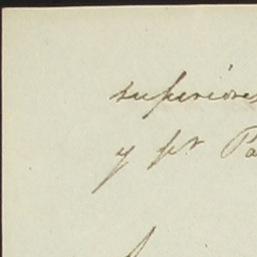 superiores
y pr Pa